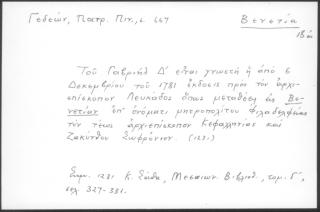 Γεδεών, Πατρ. Πιν., σ. 667
Βενετία
18 αι
Τοῦ Γαβριὴλ Δ' εἶναι γνωστὴ ἡ ἀπὸ 6
Δεκεμβρίου τοῦ 1781 ἔκδοσις πρὸς τὸν ἀρχι-
επίσκοπον Λευκάδος ὅπως μεταθέσῃ εἰς Βε-
νετίαν ὑπ' ὀνόματι μητροπολίτου Φιλαδελφείας
τὸν τέως ἀρχιεπίσκοπον Κεφαλληνίας καὶ
Ζακύνθου Σωφρόνιον. (123.)
Σημ. 1231 Κ. Σάθα, Μεσαιων. Βιβλιοθ., τομ. Γ',
σελ. 327-331.